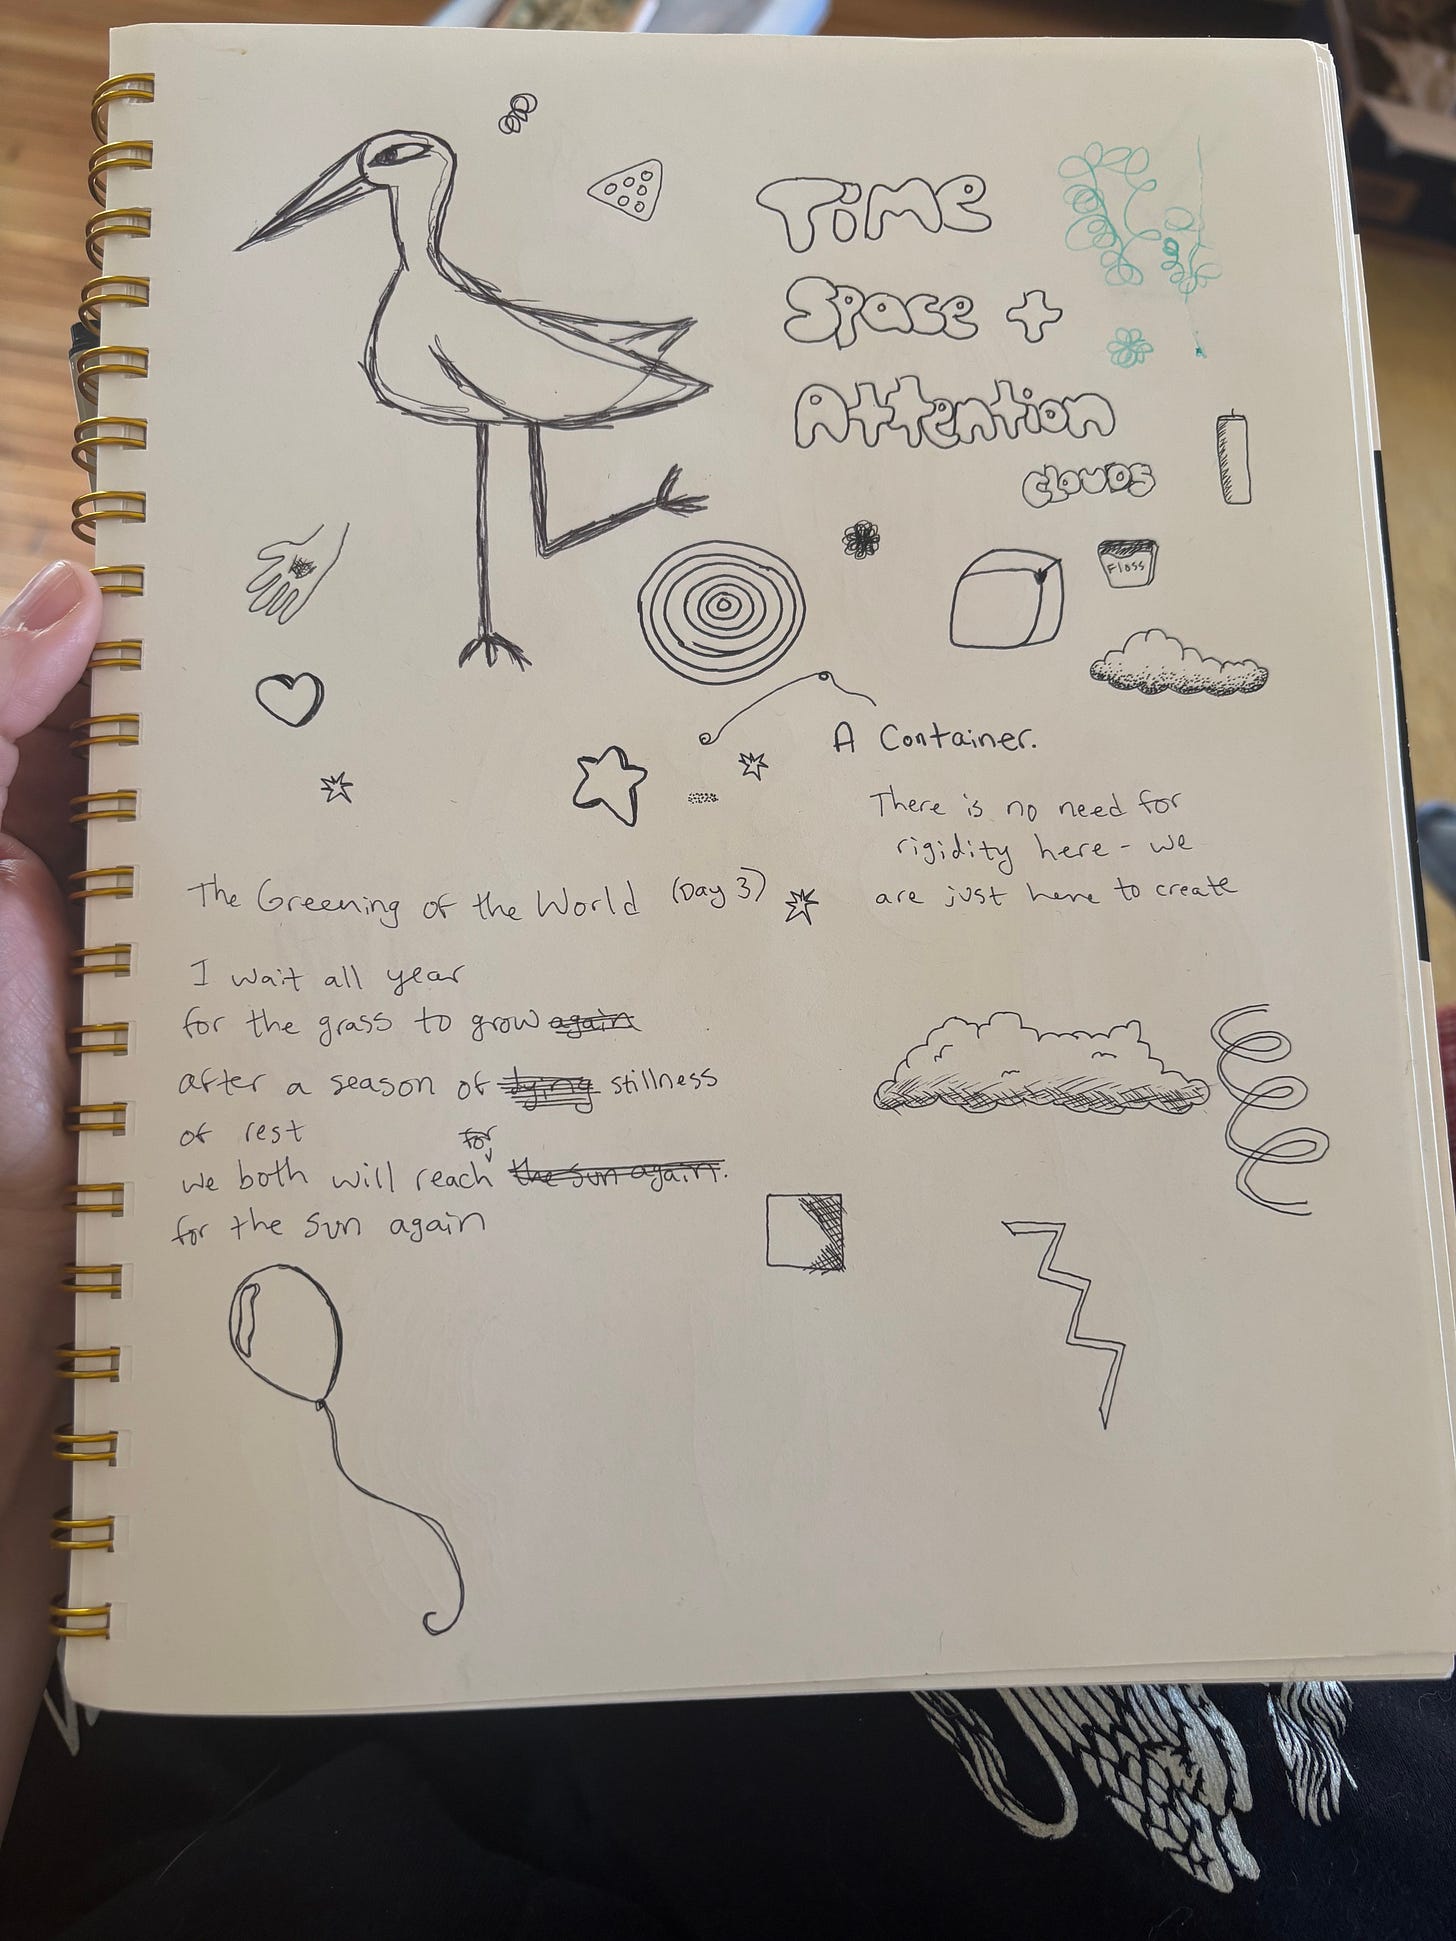 Time
Space +
Attention
clouds
Floss
A Container.
There is no need for
rigidity here - we
are just here to create
The Greening of the World (Day 3)
I wait all year
for the grass to grow again
after a season of dying stillness
of rest
for
we both will reach the sun again.
for the sun again